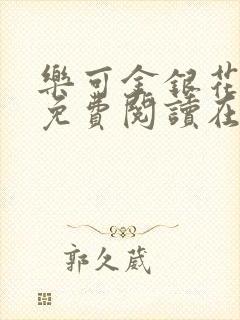 樂可金銀花
免費閱讀在
郭久葳